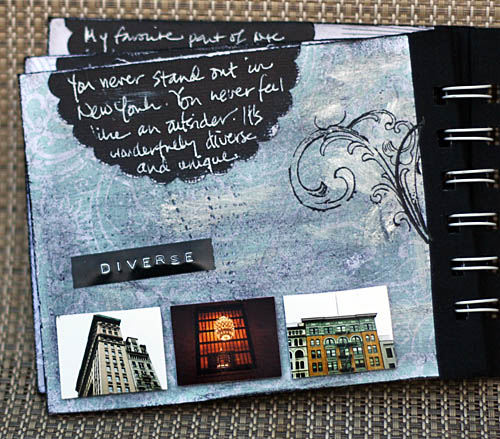 My favorite part of
You never stand out in
New York. You never feel
like an outsider. It's
wonderfully diverse
and unique.
DIVERSE